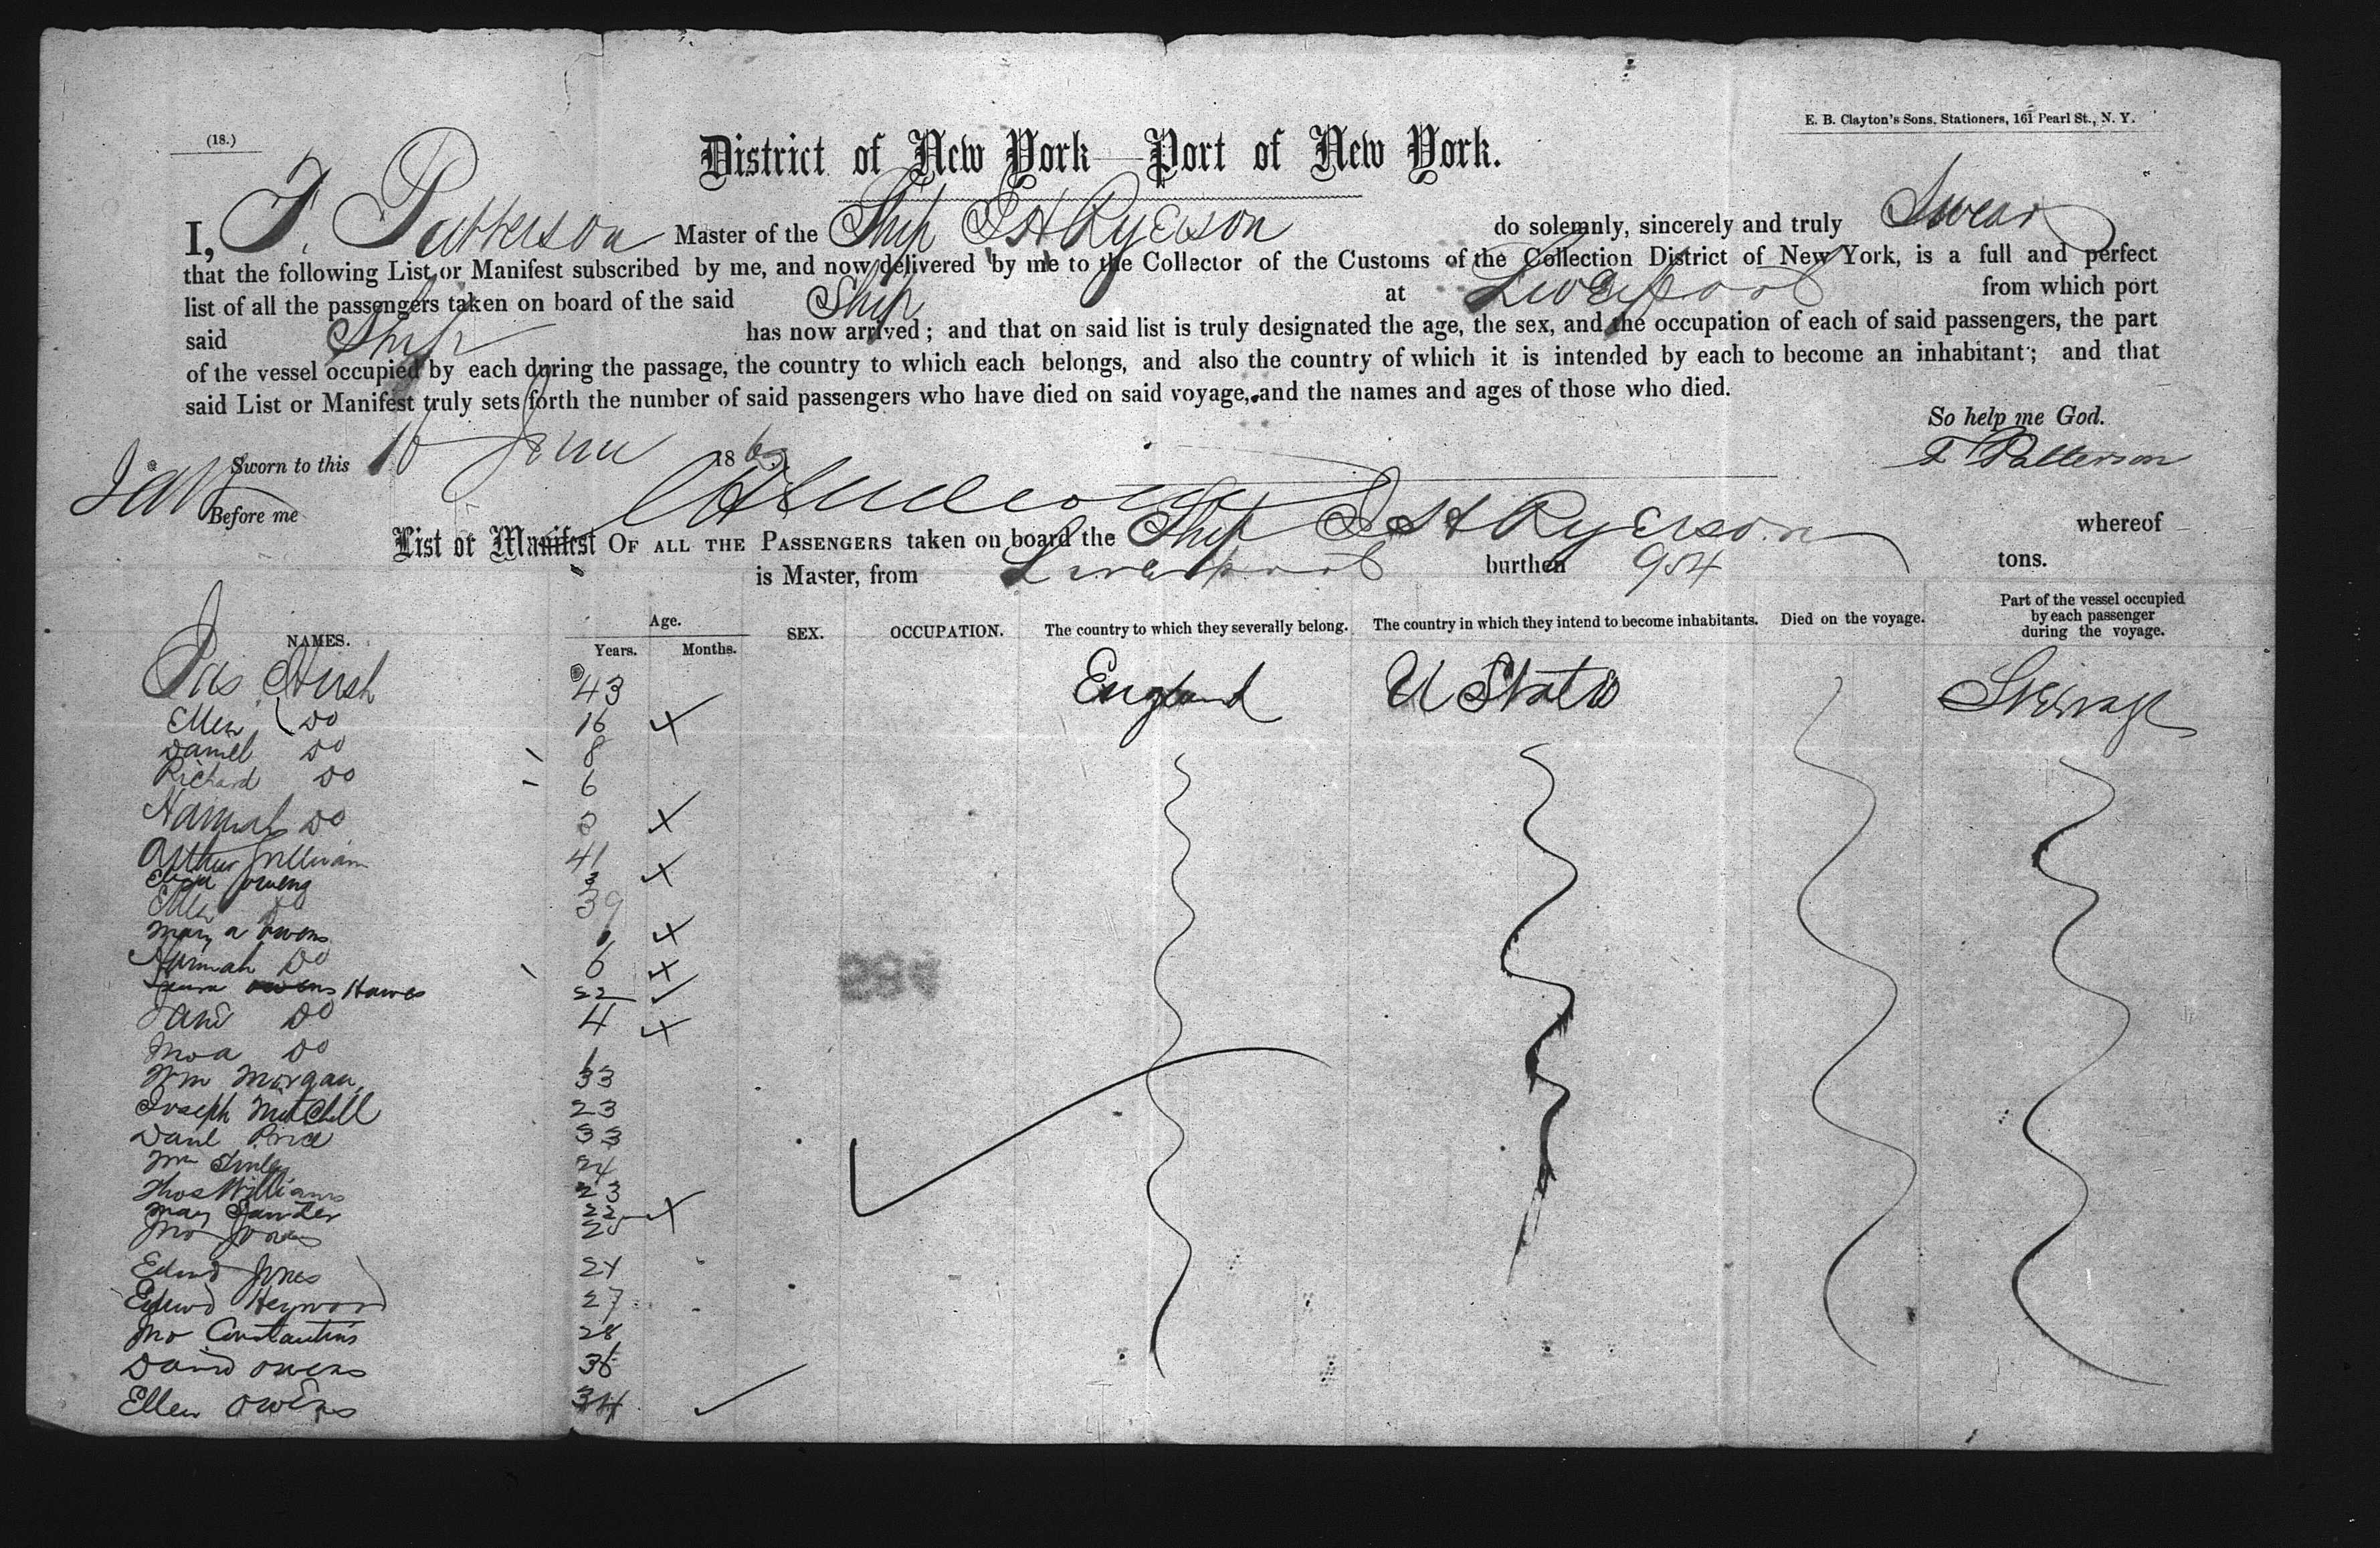 (18.)
E. B. Clayton's Sons, Stationers, 161 Pearl St., N. Y.
District of New York—Port of New York.
I, F. Patterson Master of the Ship J H Ryerson do solemnly, sincerely and truly Swear
that the following List or Manifest subscribed by me, and now delivered by me to the Collector of the Customs of the Collection District of New York, is a full and perfect
list of all the passengers taken on board of the said Ship at Liverpool from which port
said Ship has now arrived; and that on said list is truly designated the age, the sex, and the occupation of each of said passengers, the part
of the vessel occupied by each during the passage, the country to which each belongs, and also the country of which it is intended by each to become an inhabitant; and that
said List or Manifest truly sets forth the number of said passengers who have died on said voyage, and the names and ages of those who died.
So help me God.
Sworn to this 10 June 186
F Patterson
Before me
List or Manifest OF ALL THE PASSENGERS taken on board the Ship J H Ryerson whereof
is Master, from Liverpool burthen 954 tons.
NAMES. Age. Years. Months. SEX. OCCUPATION. The country to which they severally belong. The country in which they intend to become inhabitants. Died on the voyage. Part of the vessel occupied by each passenger during the voyage.
43 England U States Steerage
Ellen Do 16
Daniel Do 8
Richard Do 6
Hannah Do
Arthur Sullivan 41
Eliza Owens
Ellen Do 39
Mary a Owens
Hannah Do 6
Hawes 22
Jane Do 4
Do
Wm Morgan 33
Joseph Mitchell 23
Danl Price 33
Wm 24
Thos Williams 23
Mary 22
Jno Jones
Edwd Jones 24
Edwd Heyword 27
Jno Constantins 28
David Owens 36
Ellen Owens 34